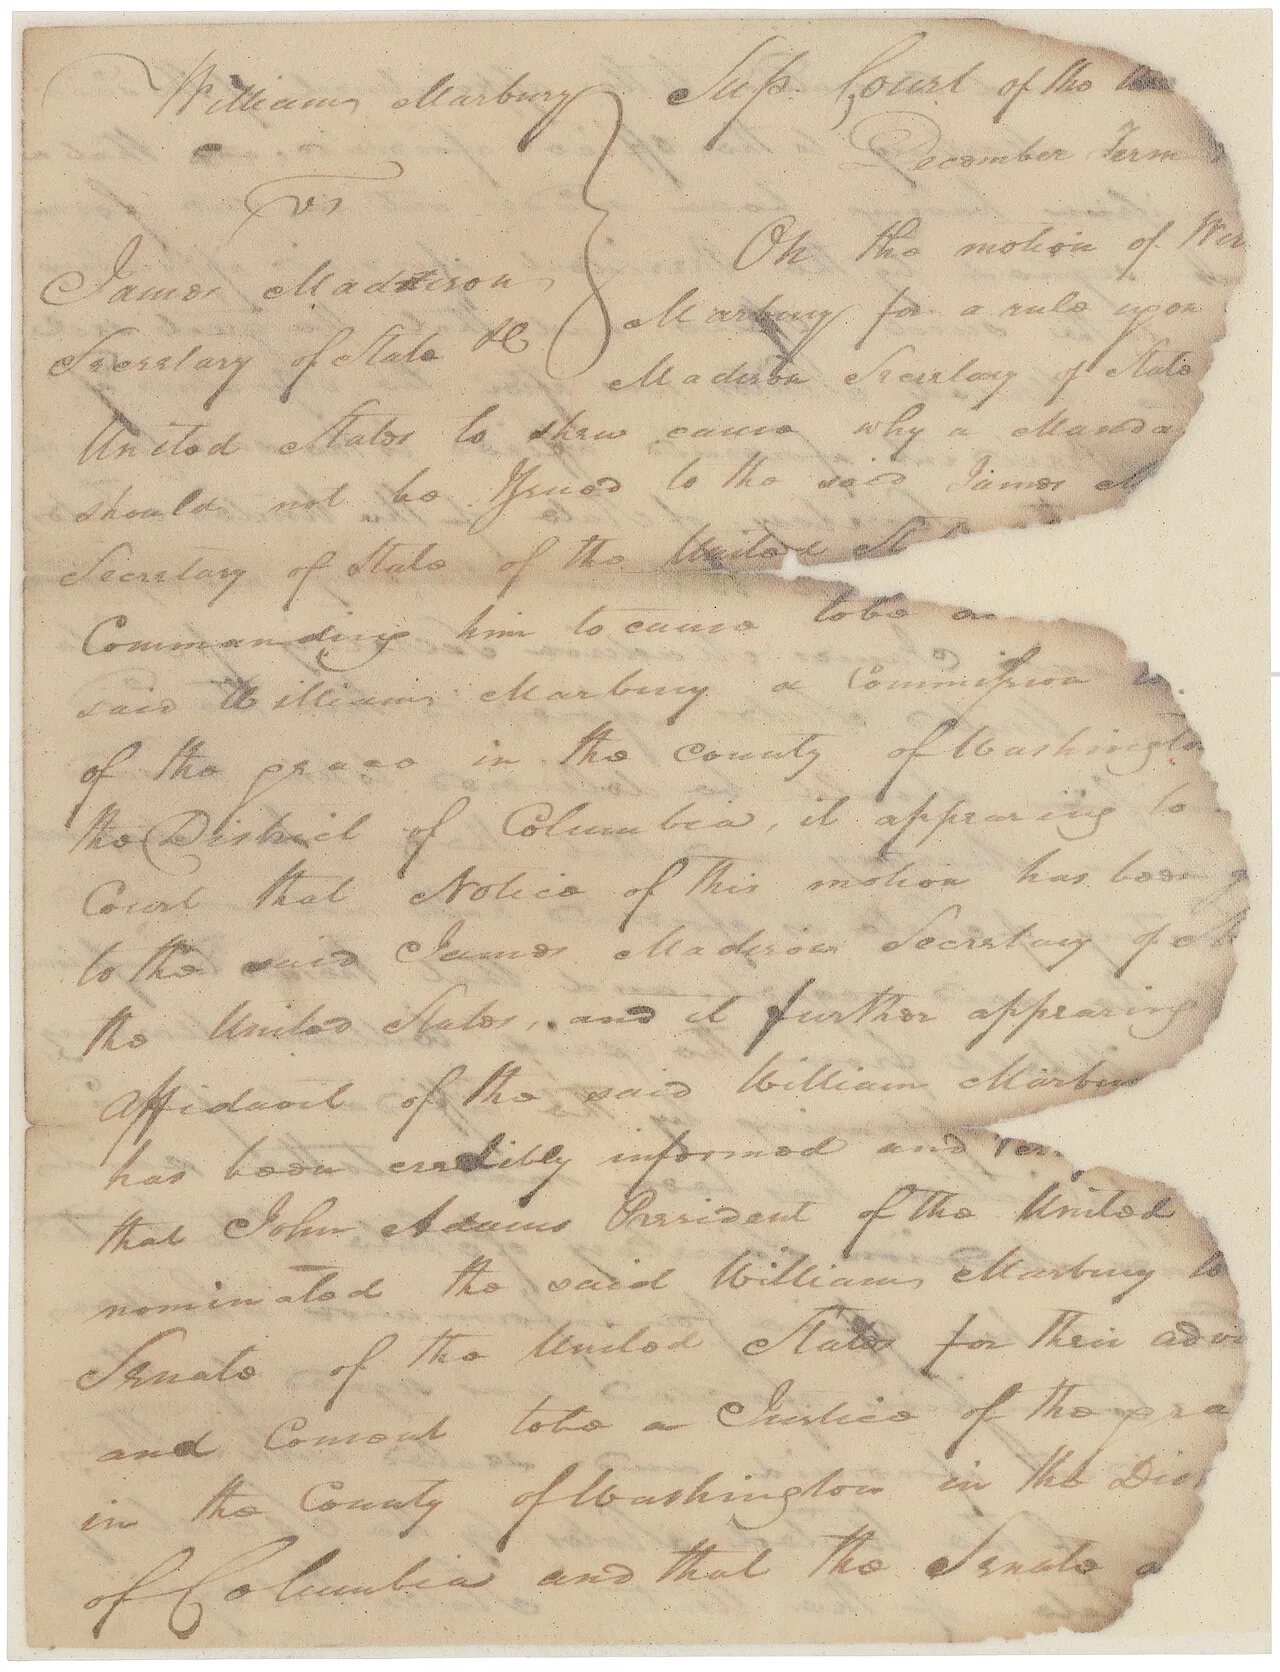 William Marbury
vs
James Madison
Secretary of State &c
Sup. Court of the
December Term
On the motion of
Marbury for a rule upon
Madison Secretary of State
United States to shew cause why a Manda
should not be Issued to the said James M
Secretary of State of the United St
Commanding him to cause to be
said William Marbury a Commission
of the peace in the county of Washingto
the District of Columbia, it appearing to
Court that Notice of this motion has been g
to the said James Madison Secretary of St
the United States, and it further appearing
affidavit of the said William Marbu
has been credibly informed and
that John Adams President of the United
nominated the said William Marbury to
Senate of the United States for their advi
and Consent to be a Justice of the pea
in the County of Washington in the Dis
of Columbia and that the Senate a